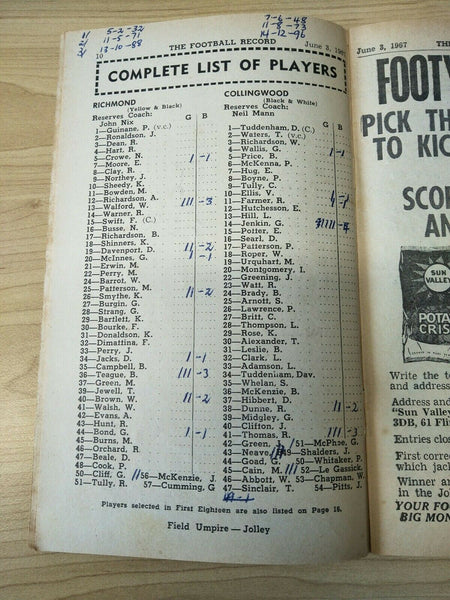 11 5-2-32
11 11-5-71
21 13-10-88
7-6-48
11-8-73
14-12-96
10 THE FOOTBALL RECORD June 3, 1967
COMPLETE LIST OF PLAYERS
RICHMOND
(Yellow & Black)
Reserves Coach: G B
John Nix
1—Guinane, P. (v.c.)
2—Ronaldson, J.
3—Dean, R.
4—Hart, R.
5—Crowe, N. 1 -1
7—Moore, E.
8—Clay, R.
9—Northey, J.
10—Sheedy, K.
11—Bowden, M.
12—Richardson, A. III -3
13—Walford, W.
14—Warner, R.
15—Swift, F. (C.)
16—Busse, N.
17—Richardson, B.
18—Shinners, K.
19—Davenport, D. 11 -2
20—McInnes, G. 1 -1
21—Erwin, M.
22—Perry, M.
24—Barrot, W.
25—Patterson, M.
26—Smythe, K. 11 -2
27—Burgin, G.
28—Strang, G.
29—Bartlett, K.
30—Bourke, F.
31—Donaldson, K.
32—Dimattina, F.
33—Perry, J.
34—Jacks, D. 1 -1
35—Campbell, B.
36—Teague, B. III -3
37—Green, M.
39—Jewell, T.
40—Brown, W. 11 -2
41—Walsh, W.
42—Evans, A.
43—Hunt, R.
44—Bond, G. 1 -1
45—Burns, M.
46—Orchard, R.
47—Beale, D.
48—Cook, P.
50—Cliff, G. 56—McKenzie, J.
51—Tully, R. 57—Cumming, G
COLLINGWOOD
(Black & White)
Reserves Coach: G B
Neil Mann
1—Tuddenham, D. (C.)
2—Waters, T. (v.c.)
3—Richardson, W.
4—Wallis, G.
5—Price, B. 1 -1
6—McKenna, P.
7—Hug, E.
8—Boyne, P.
9—Tully, C.
10—Ellis, V.
11—Farmer, R.
12—Hutchesson, E.
13—Hill, L.
14—Jenkin, G.
15—Potter, E.
16—Searl, D.
17—Patterson, P.
18—Roper, W.
19—Urquhart, M.
20—Montgomery, I.
22—Greening, J.
23—Watt, R.
24—Brady, B.
25—Arnott, S.
26—Lawrence, P.
27—Britt, C.
28—Thompson, L.
29—Rose, K.
30—Alexander, T.
31—Leslie, B.
32—Clark, L.
33—Adamson, L.
34—Tuddenham, Dav.
35—Whelan, S.
36—McKenzie, B.
37—Hibbert, D.
38—Dunne, R. 11 -2
39—Midgley, G.
40—Clifton, J.
41—Thomas, R. III -3
42—Green, J. 51—McPhee, G.
43—Neave, 49—Shalders, J.
44—Goad, G. 50—Whitaker, P.
45—Cain, M. 52—Le Gassick,
46—Abbott, W. 53—Chapman, W.
47—Sinclair, T. 54—Pitts, J.
Players selected in First Eighteen are also listed on Page 16.
Field Umpire — Jolley
June 3, 1967 THE
FOOTY
PICK TH
TO KIC
SCOR
AN
SUN
VALLEY
POTA
CRIS
Write the t
and address
Address and
"Sun Valley
3DB, 61 Fli
Entries close
First correc
which jack
Winner an
in the Jo
YOUR FO
BIG MON